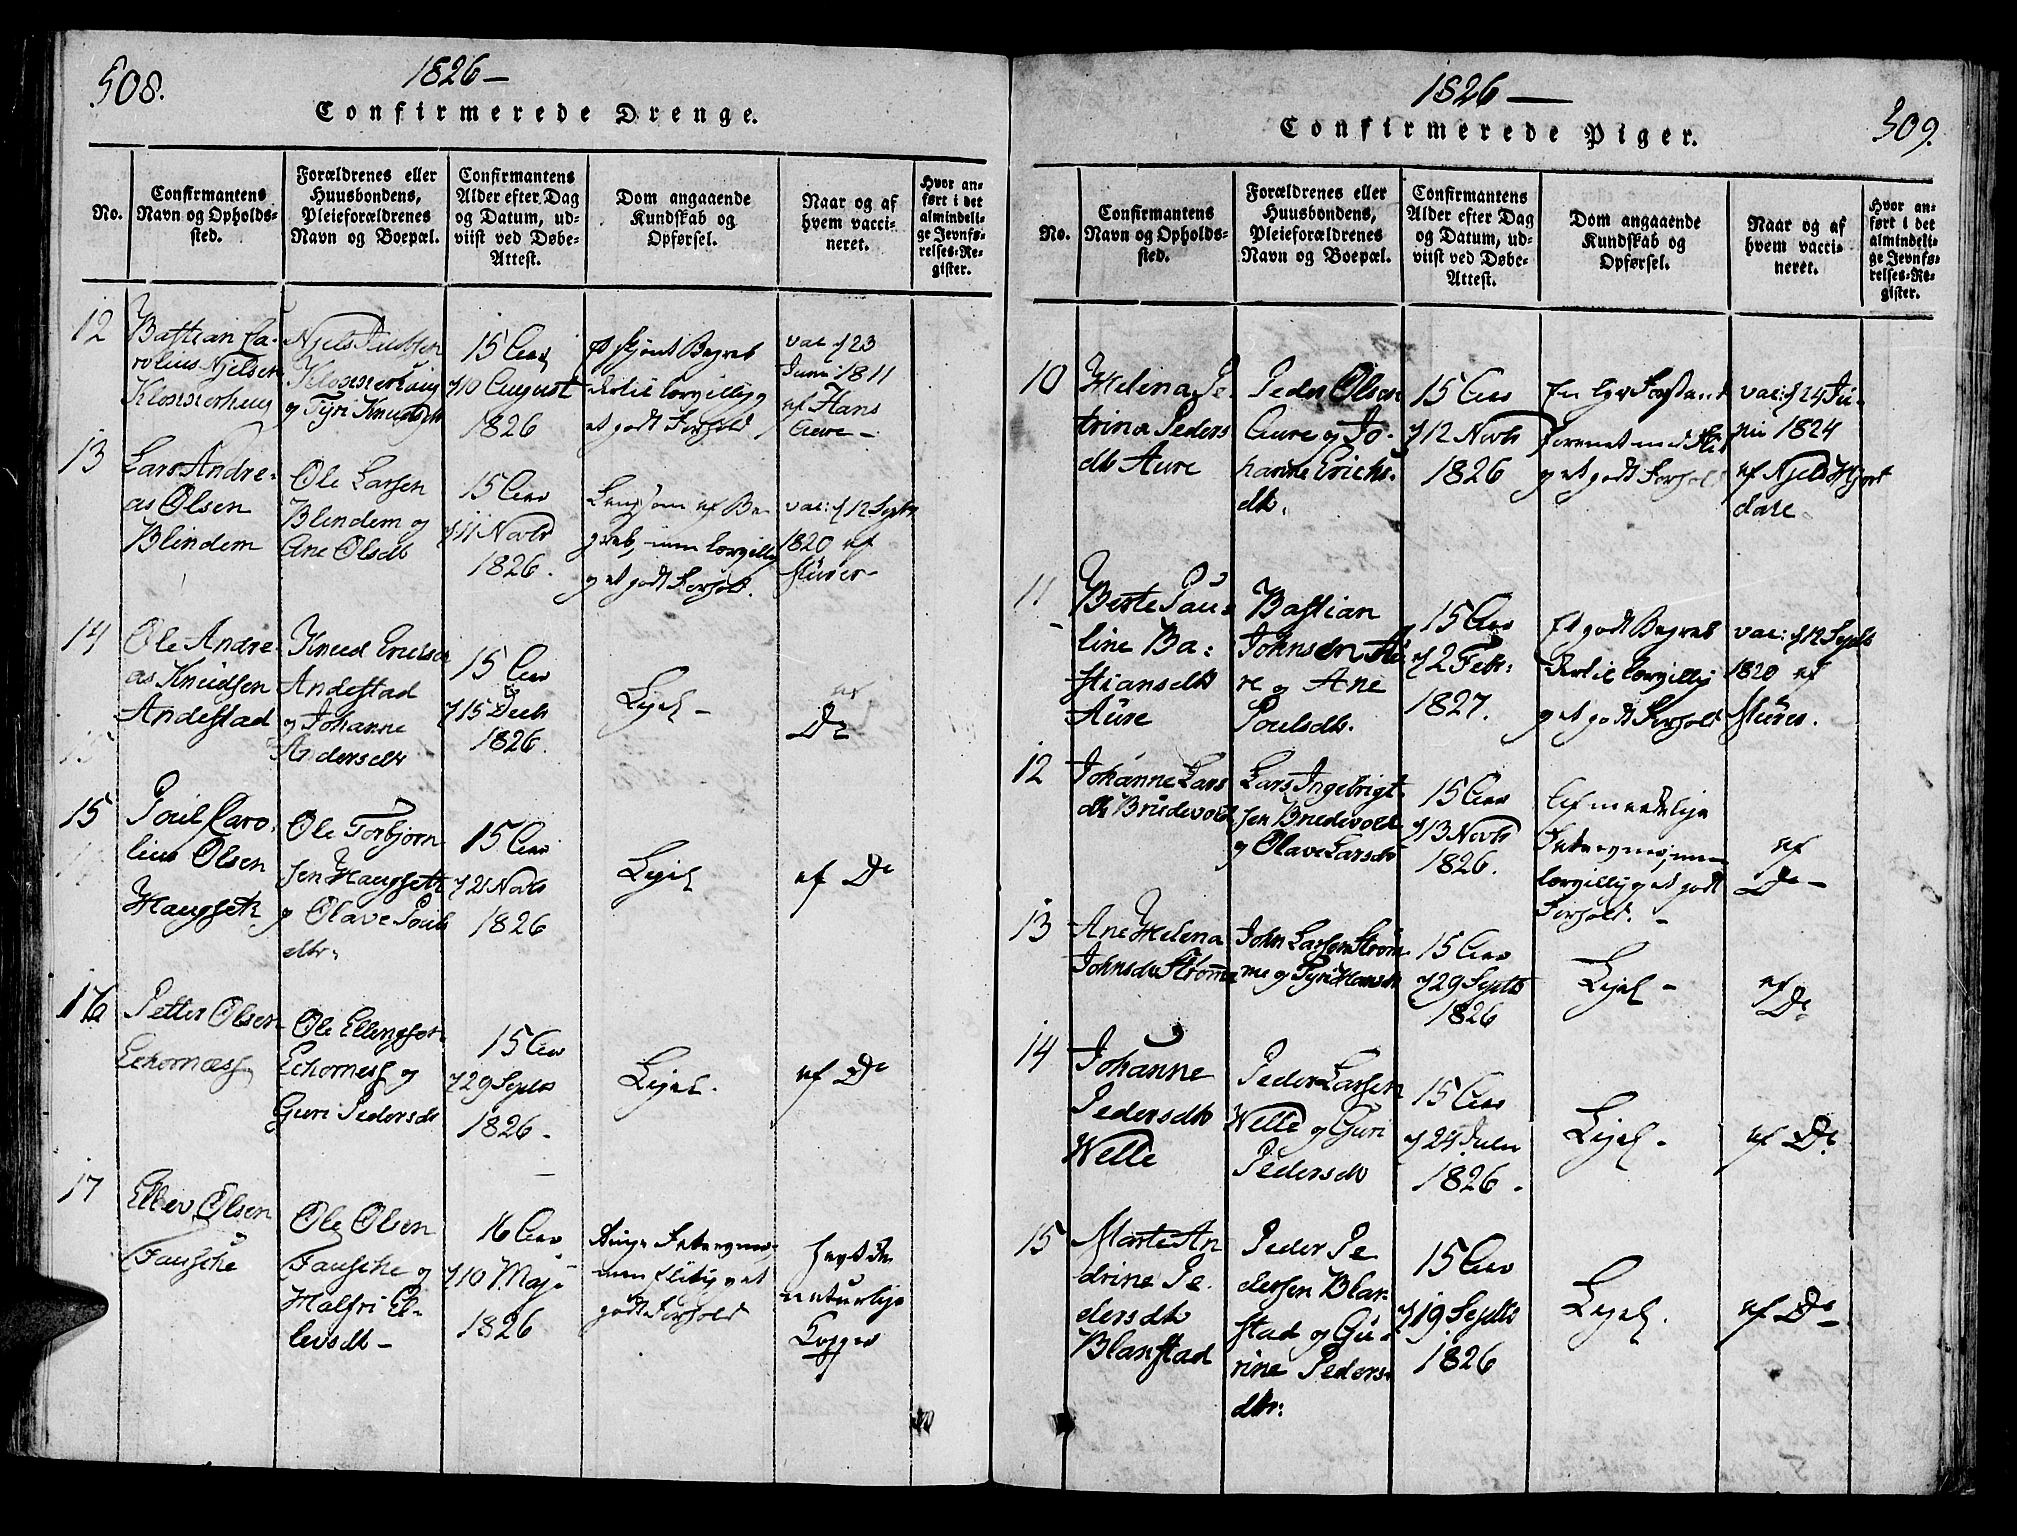 508.
1826 —
Confirmerede Drenge.
No.
Confirmantens
Navn og Opholds-
sted.
Forældrenes eller
Huusbondens,
Pleieforældrenes
Navn og Boepæl.
Confirmantens
Alder efter Dag
og Datum, ud-
viist ved Døbe-
Attest.
Dom angaaende
Kundskab og
Opførsel.
Naar og af
hvem vacci-
neret.
Hvor an-
ført i det
almindeli-
ge Jevnfø-
relses-Re-
gister.
12
Bastian Ca-
rolius Njelsen
Klosterhaug
Njels
Klosterhaug
og Tyri Knudsdtr
15 Aar
d 10 August
1826
et skjønt Begreb
lærvillig og
et godt Forhold
vac d 23
Juni 1811
af Hans
Aure —
13
Lars Andre-
as Olsen
Blindem
Ole Larsen
Blindem og
Ane Olsdtr
15 Aar
d 11 Novbr
1826.
Langsom af Be-
greb, men lærvillig
og et godt Forhold.
vac: d 12 Septbr
1820 af
Stürer —
14
Ole Andre-
as Knudsen
Andestad
Knud Ericksen
Andestad
og Johanne
Andersdtr
15 Aar
d 15 Decbr
1826.
Ligel —
af
Do
15
Poul Caro-
lius Olsen
Haugseth
Ole Torbjørn-
sen Haugseth
og Olave Pouls-
dtr.
15 Aar
d 21 Novbr
1826
Ligel
af Do
16
Petter Olsen
Echornæss
Ole Ellingsen
Echorness og
Guri Pedersdtr
15 Aar
d 29 Septbr
1826 —
Ligel.
af Do
17
Ellev Olsen
Fausche
Ole Olsen
Fausche og
Malfri El-
levsdtr —
16 Aar
d 10 Maji
1826
Ringe Fatteevne
men flittig og et
godt Forhold
havt de
naturlige
Kopper
1826 —
509.
Confirmerede Piger.
No.
Confirmantens
Navn og Opholds-
sted.
Forældrenes eller
Huusbondens,
Pleieforældrenes
Navn og Boepæl.
Confirmantens
Alder efter Dag
og Datum, ud-
viist ved Døbe-
Attest.
Dom angaaende
Kundskab og
Opførsel.
Naar og af
hvem vacci-
neret.
Hvor an-
ført i det
almindeli-
ge Jevnfø-
relses-Re-
gister.
10
Helena Pe-
trina Peders
dtr Aure
Peder Olsen
Aure og Jo-
hanne Erichs-
dtr.
15 Aar
d 12 Novbr
1826
En god Forstand
forenet med Flid
og et godt Forhold
vac: d 24 Ju-
ni 1824
af Njels Hjort
dale
11
Berte Pau-
line Ba-
stiansdtr
Aure
Bastian
Johnsen Au-
re og Ane
Poulsdtr.
15 Aar
d 2 Febr:
1827.
Et godt Begreb
lærvillig
og et godt Forhold
vac: d 12 Septbr
1820 af
Stürer.
12
Johanne Lars
dtr Brudevold
Lars Ingebrigt-
sen Brudevold
og Olave Larsdtr
15 Aar
d 13 Novbr
1826.
Af maadelige
Fatteevne, men
lærvillig og et godt
Forhold. —
af
Do —
13
Ane Helena
Johnsdtr Strømme
John Larsen Strøm-
me og Tyri Hansdtr
15 Aar
d 29 Septbr
1826
Ligel —
af
Do
14
Johanne
Pedersdtr
Welle
Peder Larsen
Welle og Guri
Pedersdtr
15 Aar
d 24 Julii
1826 —
Ligel —
af Do
15
Marte An
drine Pe-
dersdtr
Blanstad
Peder Pe
dersen Blan-
stad og Gu-
rine Peders-
dtr:
15 Aar
d 19 Septbr
1826
Ligel.
af Do —